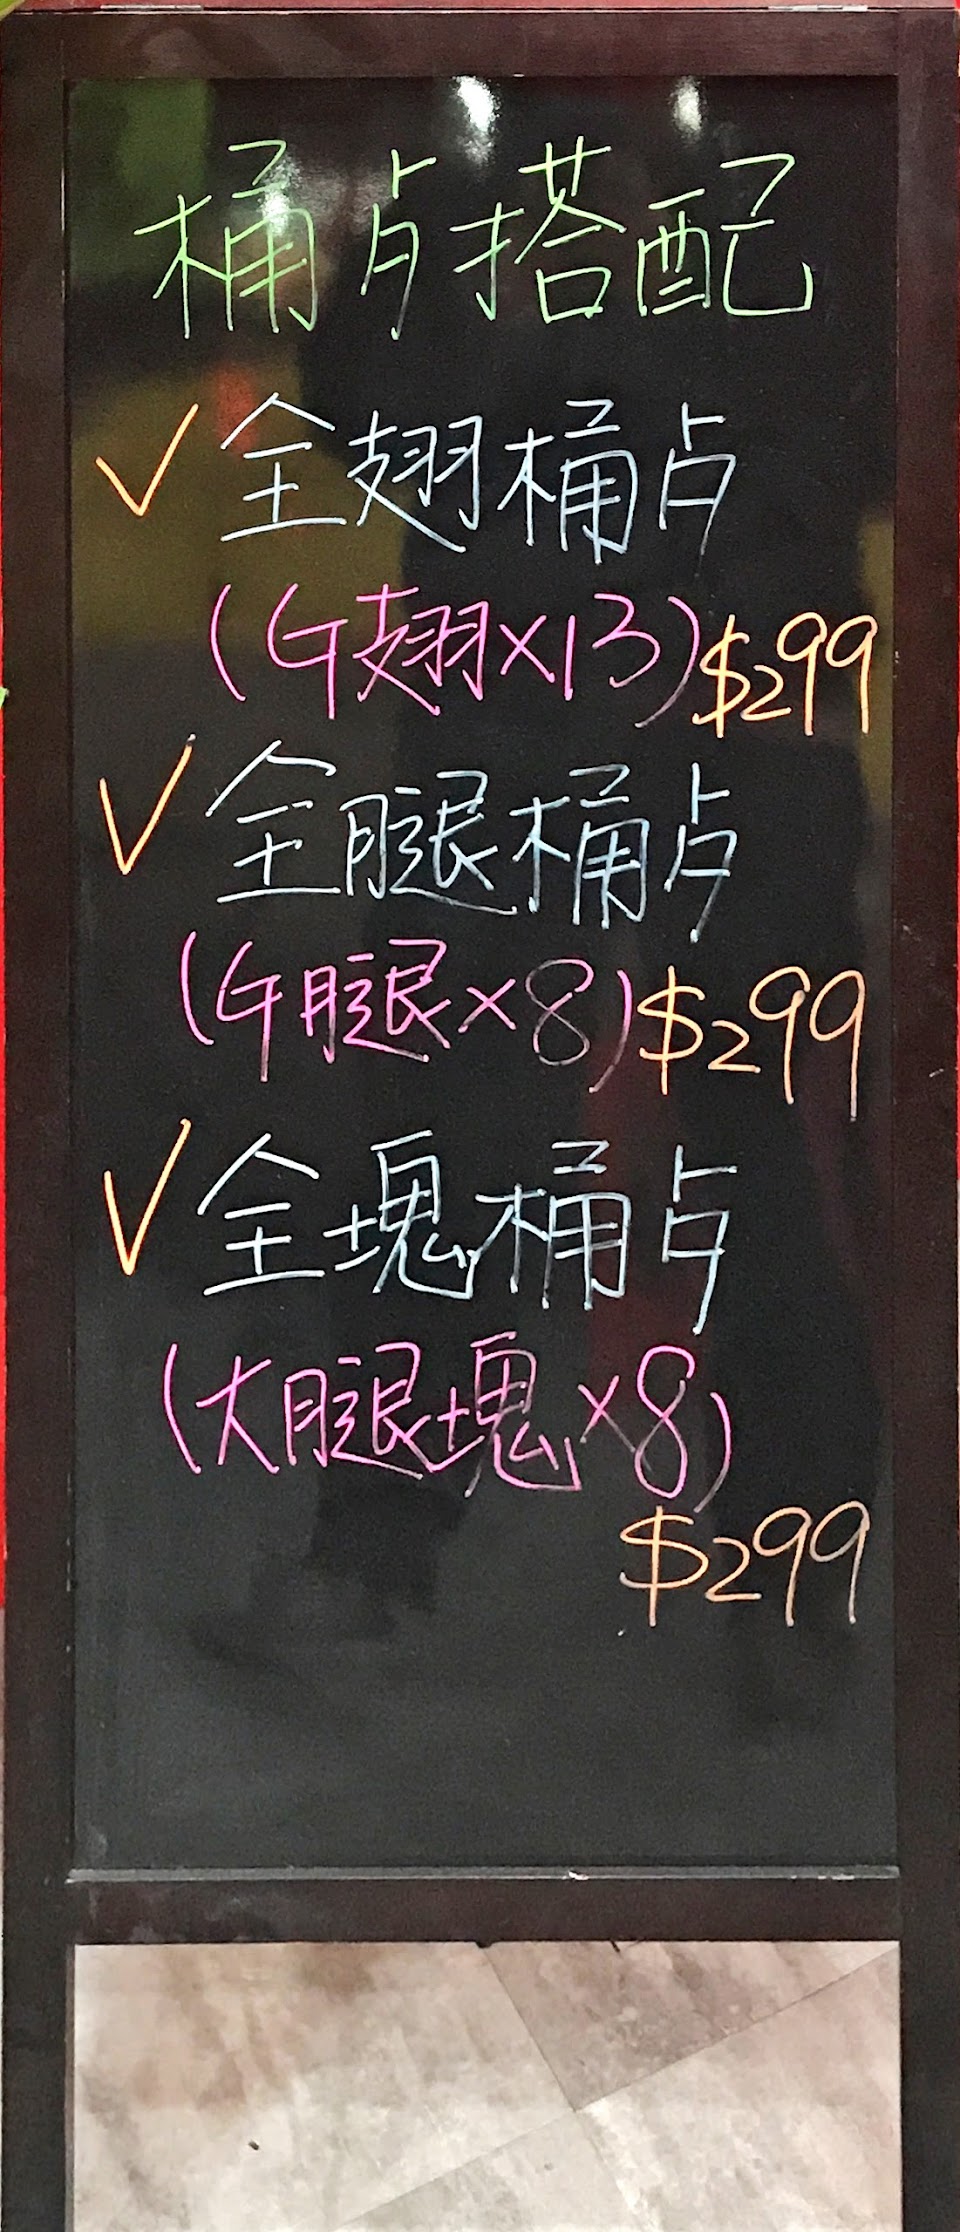 桶歺搭配
✓全翅桶歺
(G翅×13)$299
✓全腿桶歺
(G腿×8)$299
✓全塊桶歺
(大腿塊×8)
$299